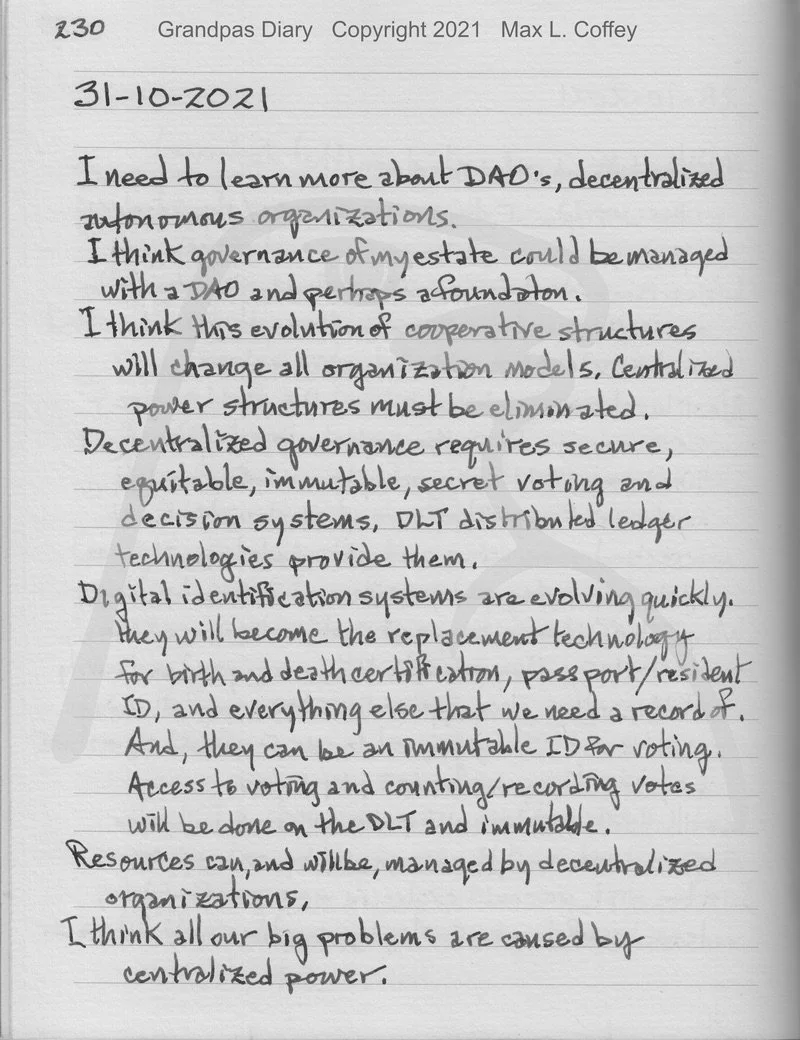 230 Grandpas Diary Copyright 2021 Max L. Coffey
31-10-2021
I need to learn more about DAO's, decentralized
autonomous organizations.
I think governance of my estate could be managed
with a DAO and perhaps a foundaton.
I think this evolution of cooperative structures
will change all organization models. Centralized
power structures must be eliminated.
Decentralized governance requires secure,
equitable, immutable, secret voting and
decision systems, DLT distributed ledger
technologies provide them.
Digital identification systems are evolving quickly.
they will become the replacement technology
for birth and death certification, passport/resident
ID, and everything else that we need a record of.
And, they can be an immutable ID for voting.
Access to voting and counting/recording votes
will be done on the DLT and immutable.
Resources can, and will be, managed by decentralized
organizations,
I think all our big problems are caused by
centralized power.